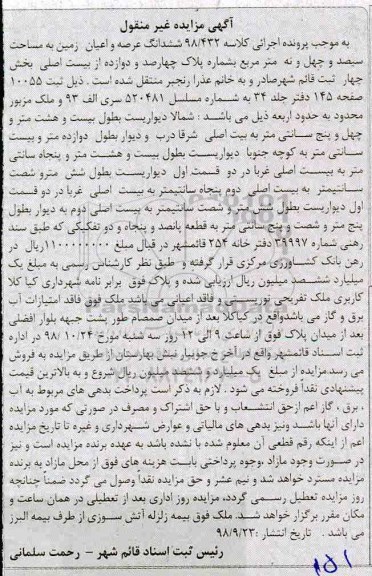 آگهی مزایده غیر منقول
به موجب پرونده اجرائی کلاسه ۹۸/۴۳۲ ششدانگ عرصه و اعیان زمین به مساحت
سیصد و چهل و نه متر مربع بشماره پلاک چهارصد و دوازده از بیست اصلی بخش
چهار ثبت قائم شهرصادر و به خانم عذرا رنجبر منتقل شده است . ذیل ثبت ۱۰۰۵۵
صفحه ۱۴۵ دفتر جلد ۳۴ به شماره مسلسل ۵۲۰۴۸۱ سری الف ۹۳ و ملک مزبور
محدود به حدود اربعه ذیل می باشد : شمالا دیواریست بطول بیست و هشت متر و
چهل و پنج سانتی متر به بیست اصلی شرقا درب و دیوار بطول دوازده متر و بیست
سانتی متر به کوچه جنوبا دیواریست بطول بیست و هشت متر و پنجاه سانتی
متر به بیست اصلی غربا در دو قسمت اول دیواریست بطول شش مترو شصت
سانتیمتر به بیست اصلی دوم پنجاه سانتیمتر به بیست اصلی غربا در دو قسمت
اول دیواریست بطول شش متر و شصت سانتیمتر به بیست اصلی دوم به دیوار بطول
پنج متر و شصت و پنج سانتی متر به قطعه پانصد و پنجاه و دو تفکیکی که طبق سند
رهنی شماره ۳۹۹۹۷ دفتر خانه ۲۵۴ قائمشهر در قبال مبلغ ۱۱۰۰۰۰۰۰۰۰ریال در
رهن بانک کشاورزی مرکزی قرار گرفته و طبق نظر کارشناس رسمی به مبلغ یک
میلیارد ششصد میلیون ریال ارزیابی شده و پلاک فوق برابر نامه شهرداری کیا کلا
کاربری ملک تفریحی توریستی و فاقد اعیانی می باشد ملک فوق فاقد امتیازات آب
برق و گاز می باشدواقع در کیاکلا بعد از میدان صمصام طور پشت جبهه بلوار افضلی
بعد از میدان پلاک فوق از ساعت ۹ الی ۱۲ روز سه شنبه مورخ ۹۸/۱۰/۲۴ در اداره
ثبت اسناد قائمشهر واقع در آخر خ جویبار نبش بهارستان از طریق مزایده به فروش
می رسد.مزایده از مبلغ یک میلیارد و ششصد میلیون ریال شروع و به بالاترین قیمت
پیشنهادی نقداً فروخته می شود . لازم به ذکر است پرداخت بدهی های مربوط به آب
، برق ، گاز اعم ازحق انشعاب و یا حق اشتراک و مصرف در صورتی که مورد مزایده
دارای آنها باشد ونیز بدهی های مالیاتی و عوارض شهرداری و غیره تا تاریخ مزایده
اعم از اینکه رقم قطعی آن معلوم شده یا نشده باشد به عهده برنده مزایده است و نیز
در صورت وجود مازاد ،وجوه پرداختی بابت هزینه های فوق از محل مازاد به برنده
مزایده مسترد خواهد شد و نیم عشر و حق مزایده نقداً وصول می گردد ضمناً چنانچه
روز مزایده تعطیل رسمی گردد، مزایده روز اداری بعد از تعطیلی در همان ساعت و
مکان مقرر برگزار خواهد شد. ملک فوق بیمه زلزله آتش سوزی از طرف بیمه البرز
می باشد . تاریخ انتشار :۹۸/۹/۲۳
رئیس ثبت اسناد قائم شهر – رحمت سلمانی